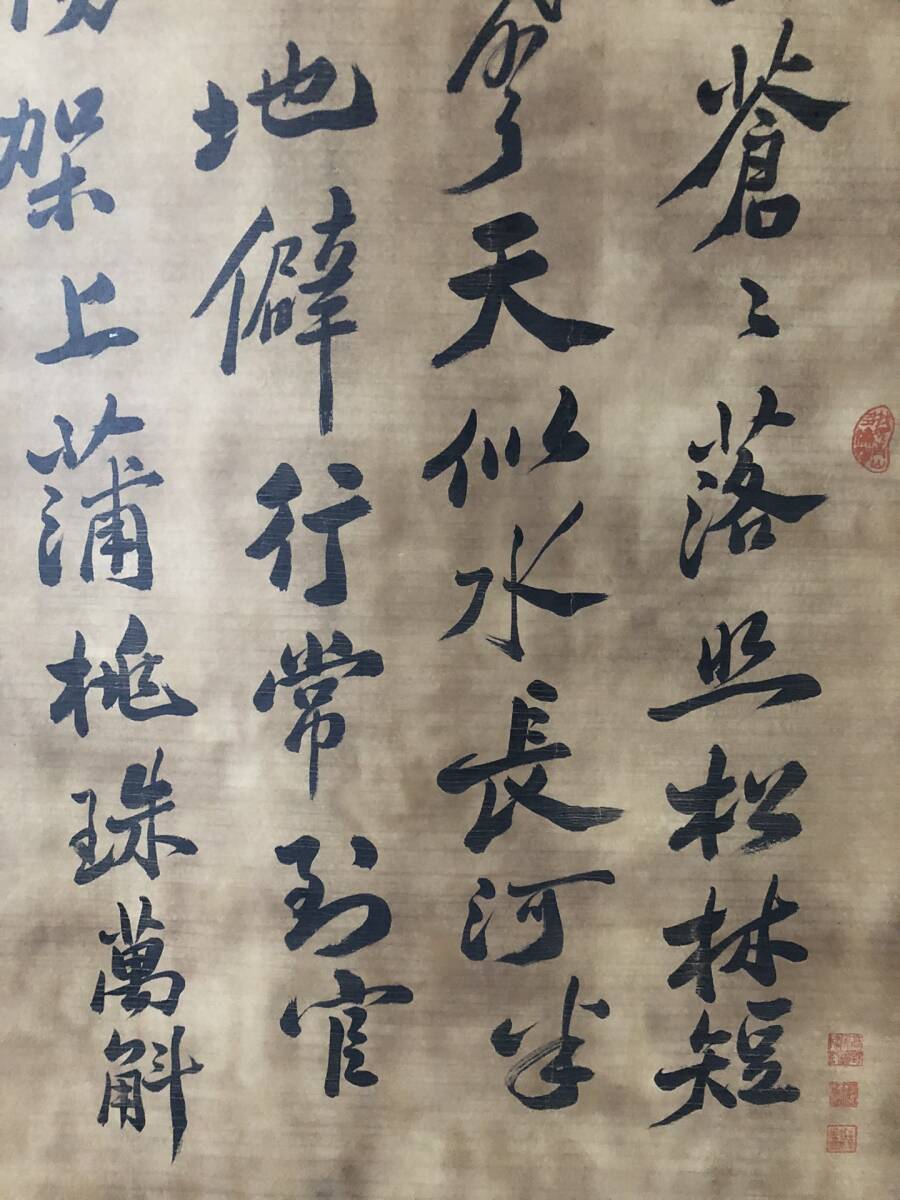 蒼〻落照松林短
寥天似水長河半
地僻行常到官
架上蒲桃珠萬斛